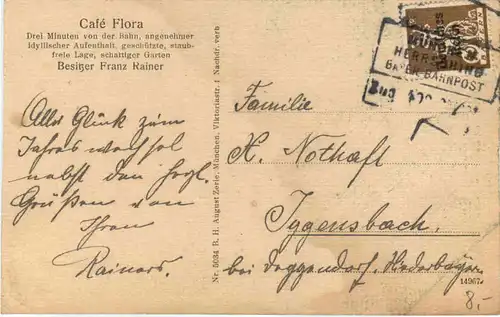 Café Flora
Drei Minuten von der Bahn, angenehmer
idyllischer Aufenthalt, geschützte, staub-
freie Lage, schattiger Garten
Besitzer Franz Rainer
Alles Glück zum
Jahreswechsel
nebst den hrzl.
Grüßen von
Ihren
Rainers.
Nr. 5034 R. H. August Zerle, München, Viktoriastr. : Nachdr. verb
HERRSCHING
BAYER. BAHNPOST
Zug
Familie
H. Nothaft
Iggensbach.
bei Deggendorf. Niederbayern
14967
8.-